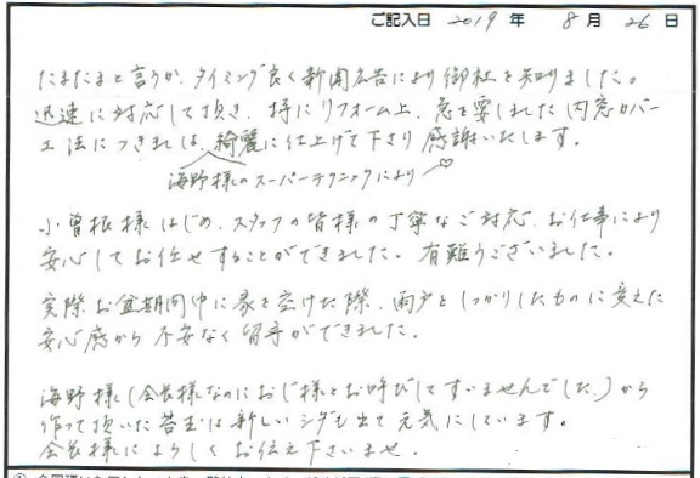 ご記入日 2019 年 8 月 26 日
たまたまと言うか、タイミング良く新聞広告により御社を知りました。
迅速に対応して頂き、特にリフォーム上、急を要しました内窓カバー
工法につきましては、綺麗に仕上げて下さり感謝いたします。
海野様のスーパーテクニックにより♡
小曽根様はじめ、スタッフの皆様の丁寧なご対応、お仕事により
安心してお任せすることができました。有難うございました。
実際お盆期間中に家を空けた際、雨戸をしっかりしたものに変えた
安心感から不安なく留守ができました。
海野様(会長様なのにおじ様とお呼びしてすいませんでした。)から
作って頂いた苔玉は新しいシダも出て元気にしています。
会長様によろしくお伝え下さいませ。